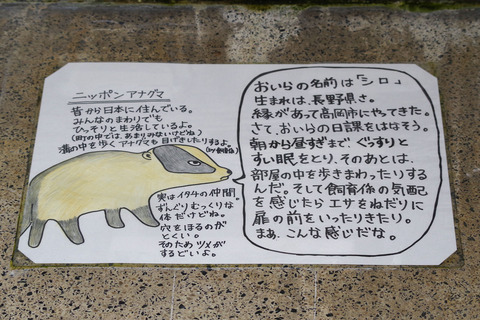 ニッポンアナグマ
昔から日本に住んでいる。
みんなのまわりでも
ひっそりと生活しているよ。
(町の中では、あまりみないけどね)
溝の中を歩くアナグマも目げきしたりするよ。
実はイタチの仲間。
ずんぐりむっくりな
体だけどね。
穴をほるのが
とくい。
そのためツメが
するどいよ。
おいらの名前は「シロ」
生まれは、長野県さ。
縁があって高岡市にやってきた。
さて、おいらの日課をはなそう。
朝から昼すぎまで、ぐっすりと
すい眠をとり、そのあとは、
部屋の中を歩きまわったりする
んだ。そして飼育係の気配
を感じたらエサをねだりに
扉の前をいったりきたり。
まぁ、こんな感じだな。